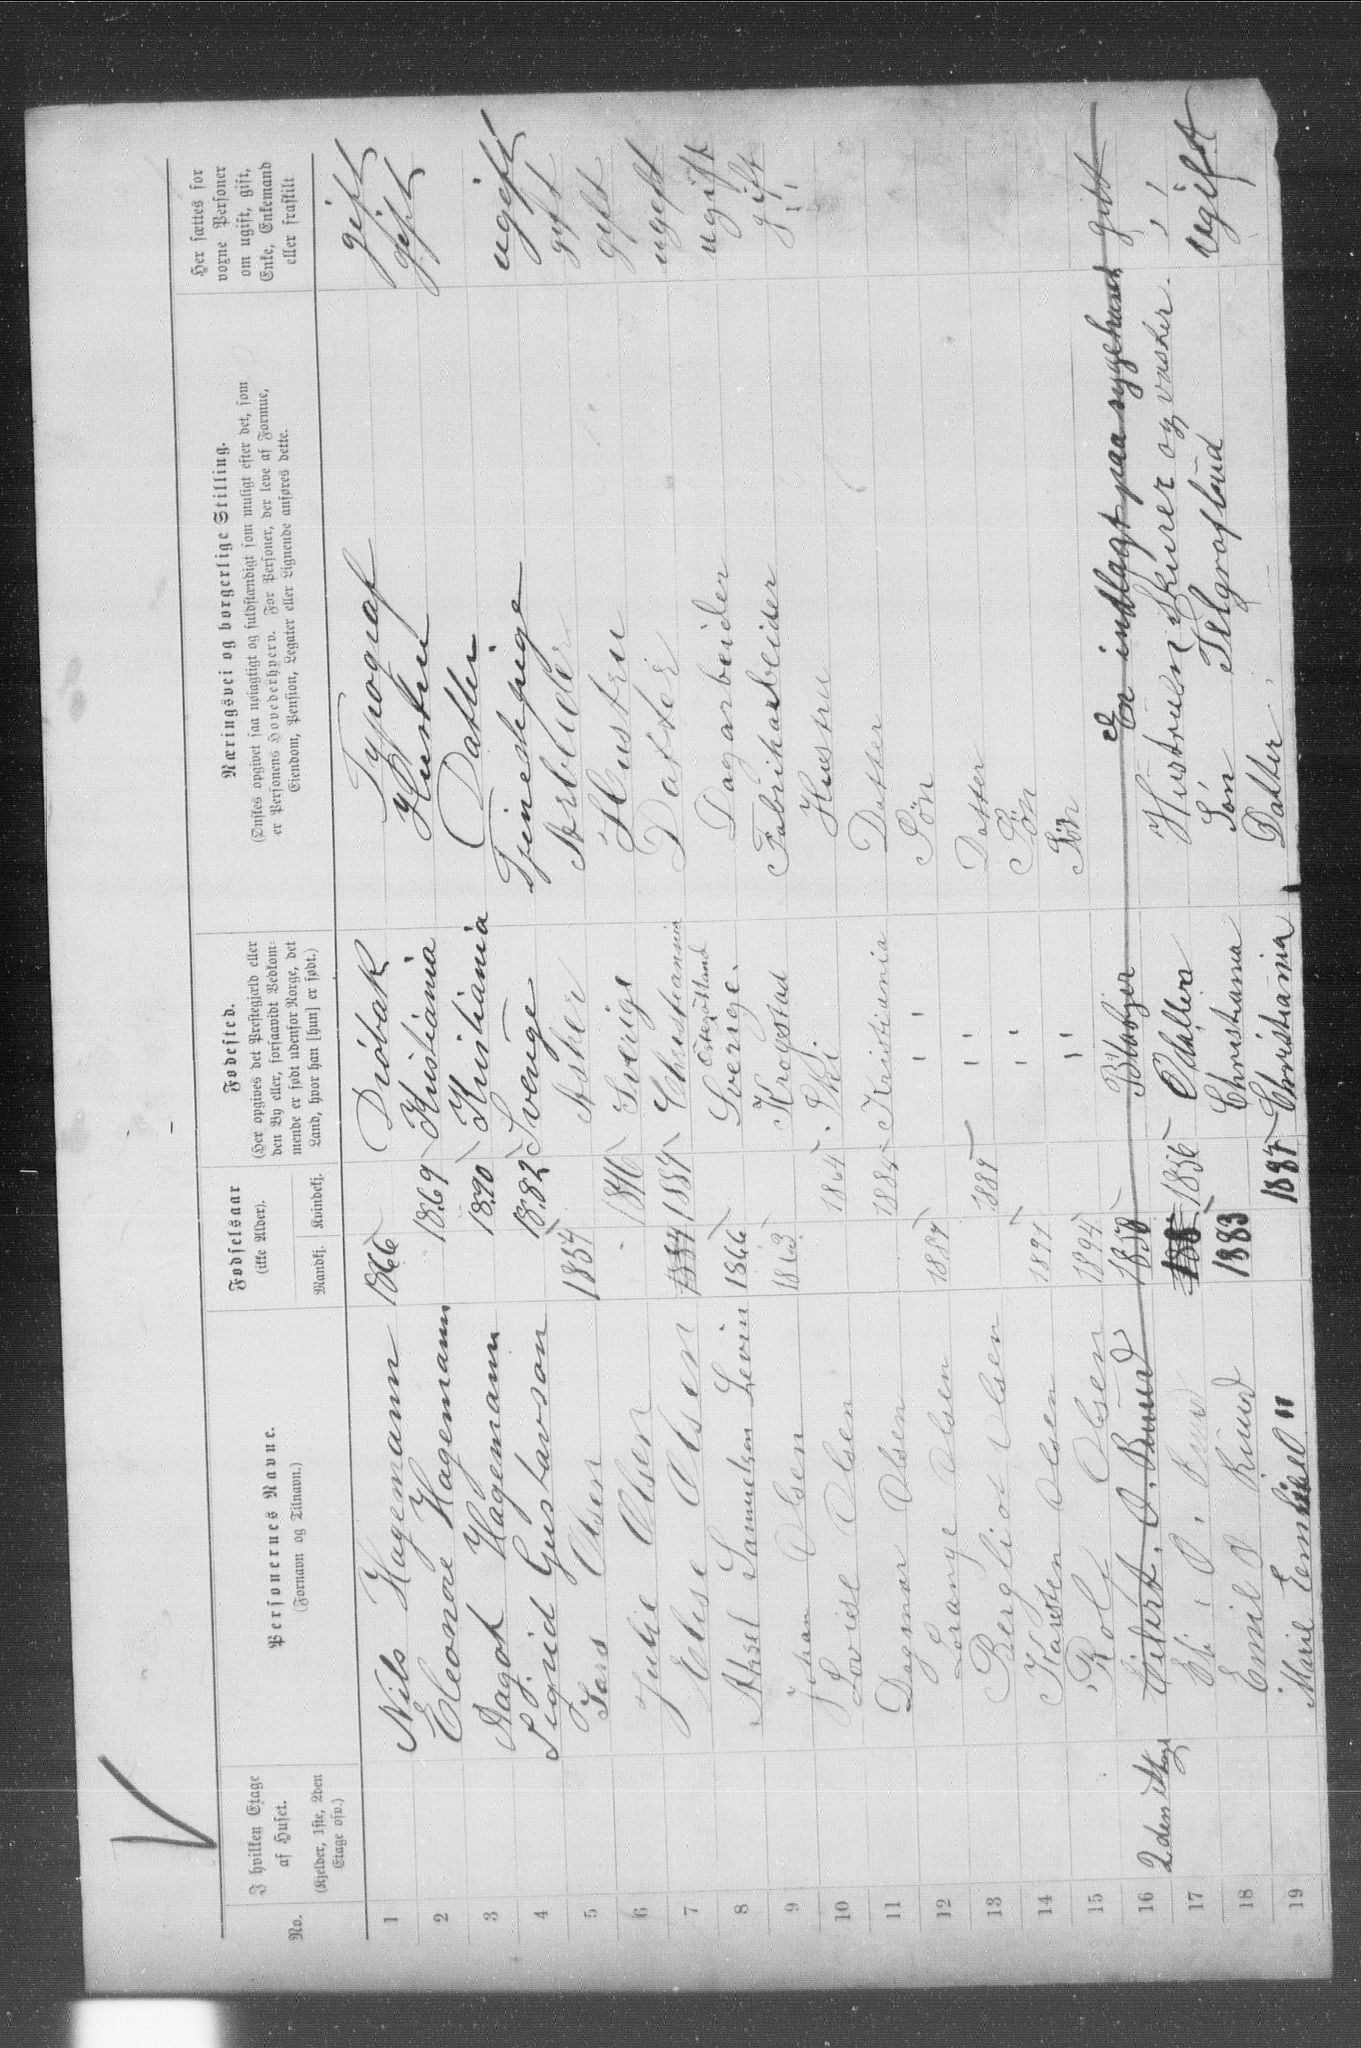 No.
I hvilken Etage
af Huset.
(Kjelder, 1ste, 2den
Etage osv.)
Personernes Navne.
(Fornavn og Tilnavn.)
Fødselsaar
(ikke Alder).
Mandkj. Kvindekj.
Fødested.
(Her opgives det Prestegjæld eller
den By eller, forsaavidt Vedkom-
mende er født udenfor Norge, det
Land, hvor han [hun] er født.)
Næringsvei og borgerlige Stilling.
(Ønskes opgivet saa nøiagtigt og fuldstændigt som muligt efter det, som
er Personens Hovederhverv. For Personer, der leve af Formue,
Eiendom, Pension, Legater eller Lignende anføres dette.
Her sættes for
voxne Personer
om ugift, gift,
Enke, Enkemand
eller fraskilt
1 Nils Hagemann 1866 Drøbak Typograf gift
2 Eleonore Hagemann 1869 Kristiania Hustru gift
3 Aagot Hagemann 1890 Kristiania Datter
4 Sigrid Gustavson 1882 Sverige Tjenestepige ugift
5 Lars Olsen 1857 Asker Arbeider gift
6 Julie Olsen 1846 Sverige Hustru gift
7 Elise Olsen 1884 1884 Christiannia Datter ugift
8 Aksel Samuelsen Levin 1866 Sverige. Østergötland Dagarbeider ugift
9 Johan Olsen 1863 Krogstad Fabrikarbeider gift
10 Lovise Olsen 1864 Ski. Hustru "
11 Dagmar Olsen 1884 Kristiania Datter
12 Lorange Olsen 1887 " Søn
13 Bergliot Olsen 1889 " Datter
14 Karsten Olsen 1891 " Søn
15 Rolf Olsen 1894 " Søn
16 2den Etage Eilert. O. Ruud 1850 Er indlagt paa sygehuset gift
17 O. Ruud 1856 Hustruen Skurer og vasker. "
18 Emil O Ruud 1883 Christiania Søn Telgrafbud ugift
19 Marie " 1887 Christiania Datter